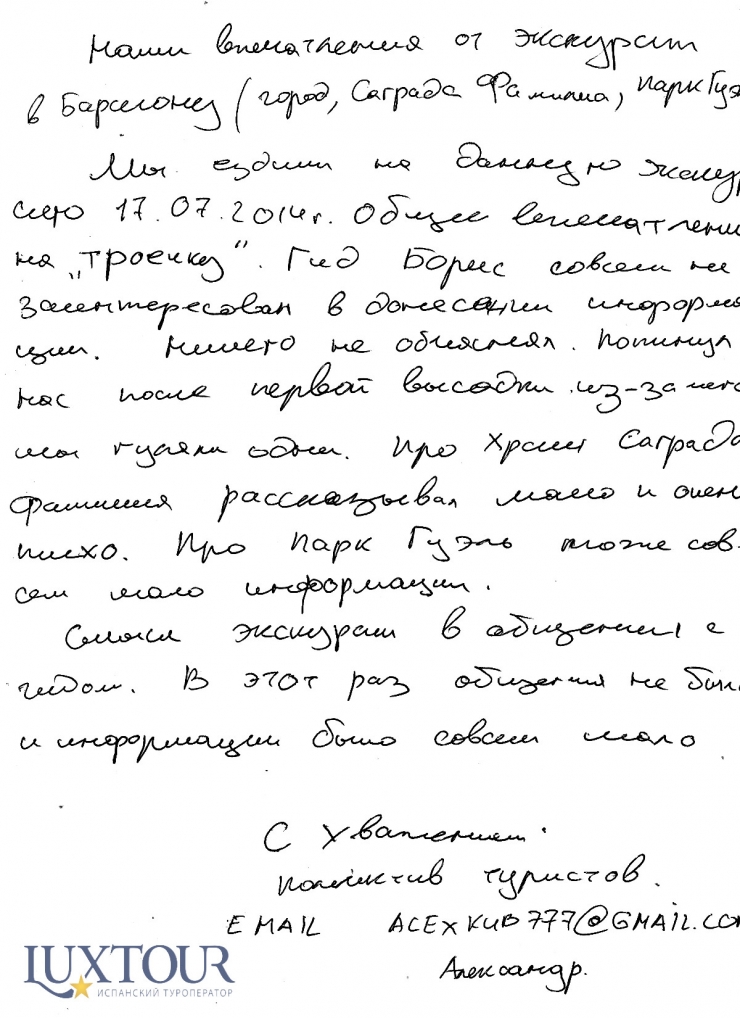 Наши впечатления от экскурсии
в Барселону (город, Саграда Фамилиа, Парк Гуэ
Мы ездили на данную экскур
сию 17.07.2014г. Общее впечатлени
на „троечку". Гид Борис совсем не
заинтересован в донесении информа
ции. Ничего не объяснял. Покинул
нас после первой высадки из-за чего
мы гуляли одни. Про Храм Саграда
Фамилия рассказывал мало и очен
плохо. Про Парк Гуэль тоже сов-
сем мало информации.
Смысл экскурсии в общении с
гидом. В этот раз общения не был
и информации было совсем мало
С Уважением
коллектив туристов.
EMAIL ACEXKUB777@GMAIL.COM
Александр.
LUXTOUR
ИСПАНСКИЙ ТУРОПЕРАТОР